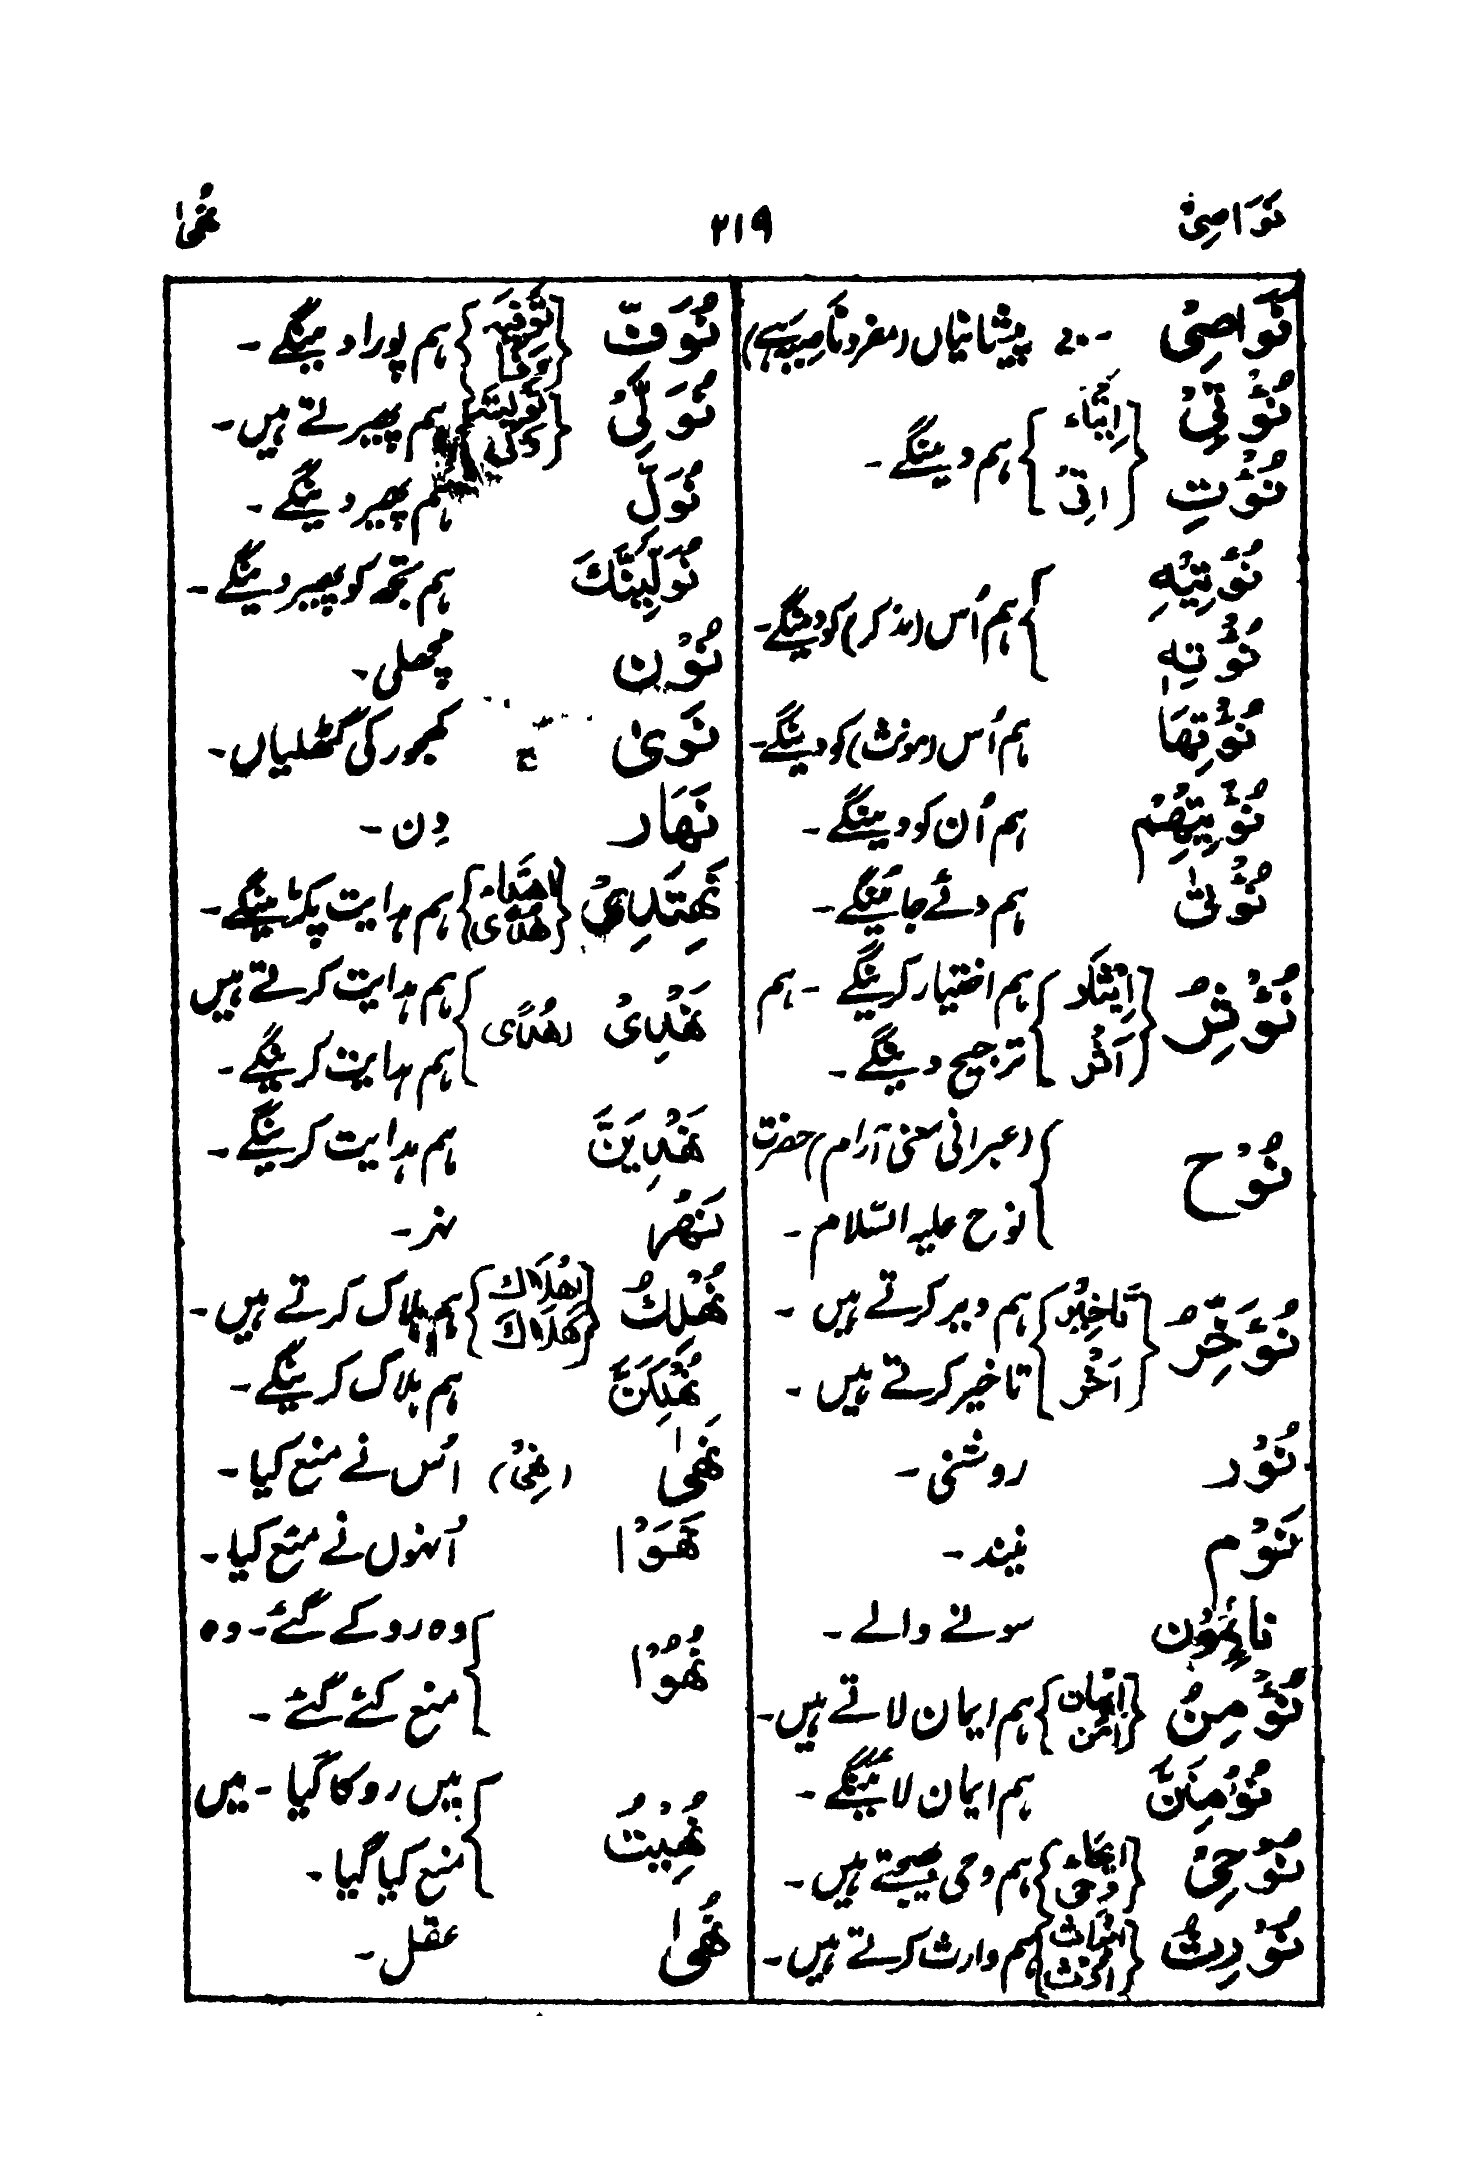 نَوَاصِیْ ۲۱۹ نُھٰی
نَوَاصِیْ پیشانیاں (مفرد نَاصِیَہ ہے)
نُؤْتِیْ {اِیْتَاء
نُؤْتِ اٰتیٰ} ہم دینگے۔
نُؤْتِیْہِ
نُؤْتِہٖ } ہم اُس (مذکر) کو دینگے۔
نُؤْتِھَا ہم اُس (مونث) کو دینگے۔
نُؤْتِیْھِمْ ہم اُن کو دینگے۔
نُؤْتٰی ہم دئے جائینگے۔
نُؤْثِرُ {اِیْثَار ہم اختیار کرینگے۔ ہم
اٰثَرَ} ترجیح دینگے۔
نُوْح (عبرانی معنی آرام) حضرت
نوح علیہ السّلام۔
نُؤَخِّرُ {تَاخِیْر ہم دیر کرتے ہیں۔
اَخَّرَ} تاخیر کرتے ہیں۔
نُوْر روشنی۔
نَوْم نیند۔
نَائِمُوْن سونے والے۔
نُؤْمِنُ {اِیْمَان
اٰمَنَ} ہم ایمان لاتے ہیں۔
نُؤْمِنَنَّ ہم ایمان لائینگے۔
نُوْحِیْ {اِیْحَاء
وَحی} ہم وحی بھیجتے ہیں۔
نُوْرِثُ {اِیْرَاث
اَوْرَثَ} ہم وارث کرتے ہیں۔
نُوَفِّ {تَوْفِیَہ
وَفّٰی} ہم پورا دینگے۔
نُوَلِّیْ {تَوْلِیَتہ
وَلّٰی} ہم پھیرتے ہیں۔
نُوَلِّ ہم پھیر دینگے۔
نُوَلِّیَنَّكَ ہم تجھ کو پھیر دینگے۔
نُوْن مچھلی۔
نَوٰی ج کھجور کی گٹھلیاں۔
نَھَار دِن۔
نَھْتَدِیْ {اِھْتِدَاء
ھُدًی} ہم ہدایت پکڑینگے۔
نَھْدِیْ (ھُدًی) ہم ہدایت کرتے ہیں
ہم ہدایت کرینگے۔
نَھْدِیَنَّ ہم ہدایت کرینگے۔
نَھْر نہر۔
نُھْلِكُ {اِھْلَاك
ھَلَاكَ} ہم ہلاک کرتے ہیں۔
نُھْلِكَنَّ ہم ہلاک کرینگے۔
نَھٰی (نَھْیٌ) اُس نے منع کیا۔
نَھَوْا اُنہوں نے منع کیا۔
نُھُوْا وہ روکے گئے۔ وہ
منع کئے گئے۔
نُھِیْتُ میں روکا گیا۔ میں
منع کیا گیا۔
نُھٰی عقل۔